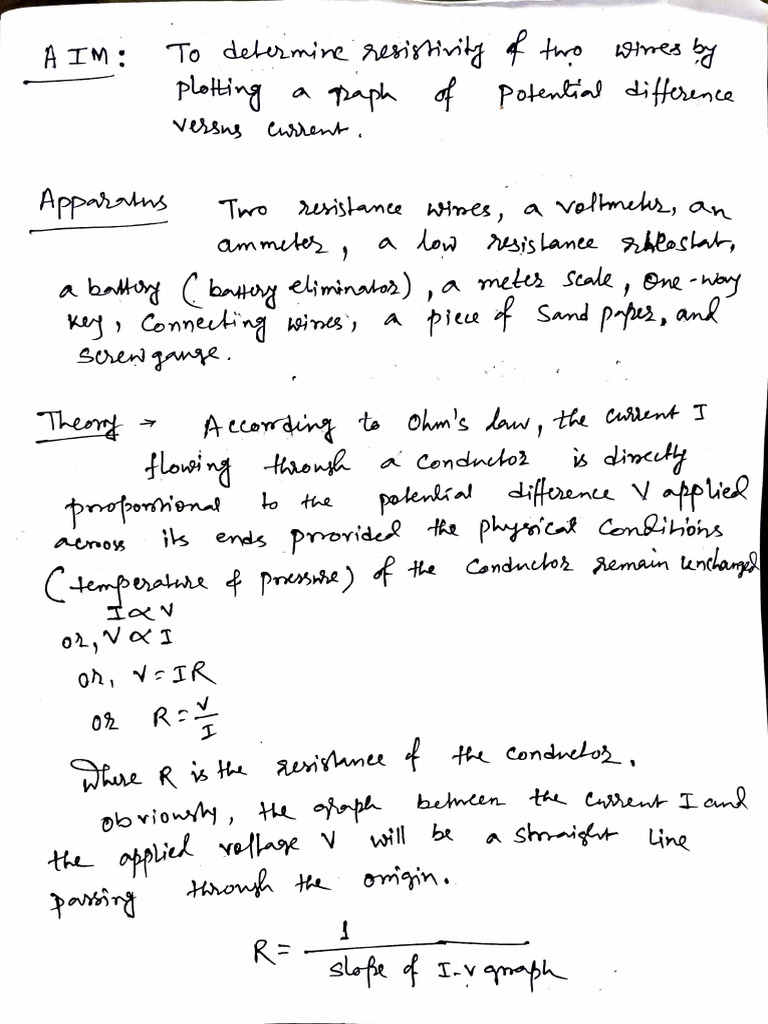 AIM: To determine resistivity of two wires by
plotting a graph of potential difference
versus current.
Apparatus Two resistance wires, a voltmeter, an
ammeter, a low resistance rheostat,
a battery (battery eliminator), a meter scale, one-way
key, Connecting wires, a piece of Sand paper, and
screw gauge.
Theory → According to Ohm's law, the current I
flowing through a conductor is directly
proportional to the potential difference V applied
across its ends provided the physical conditions
(temperature & pressure) of the conductor remain unchanged
I ∝ V
or, V ∝ I
or, V = IR
or R = V/I
Where R is the resistance of the conductor.
obviously, the graph between the current I and
the applied voltage V will be a straight line
passing through the origin.
R = 1/slope of I-V graph